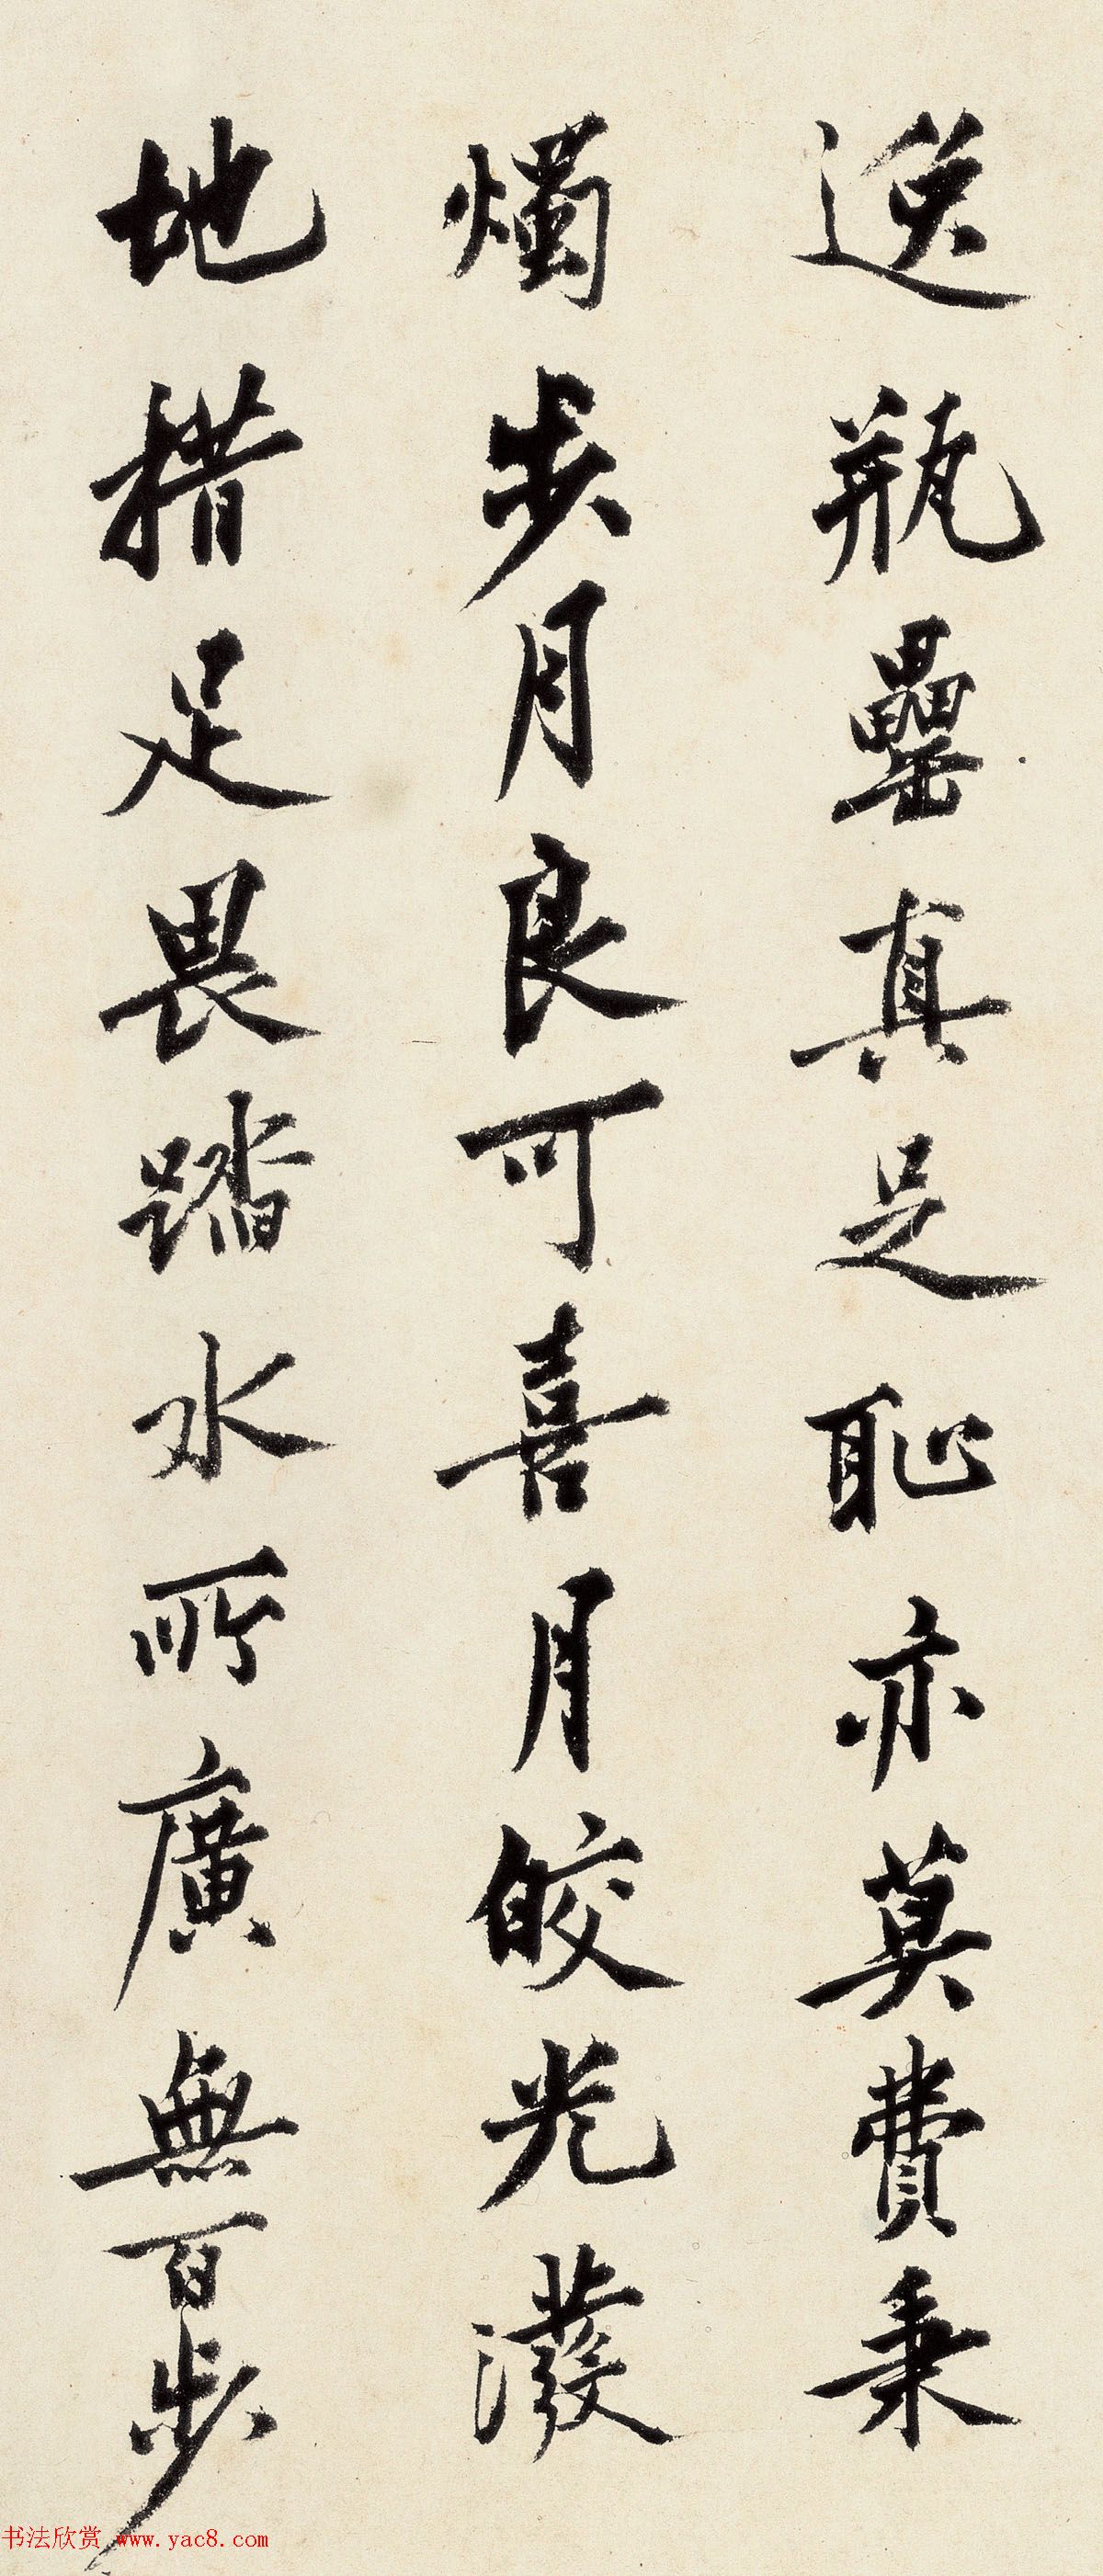 逸瓶罍真足恥亦莫費秉
燭步月良可喜月皎光潑
地措足畏踏水所廣無百步
书法欣赏 www.yac8.com